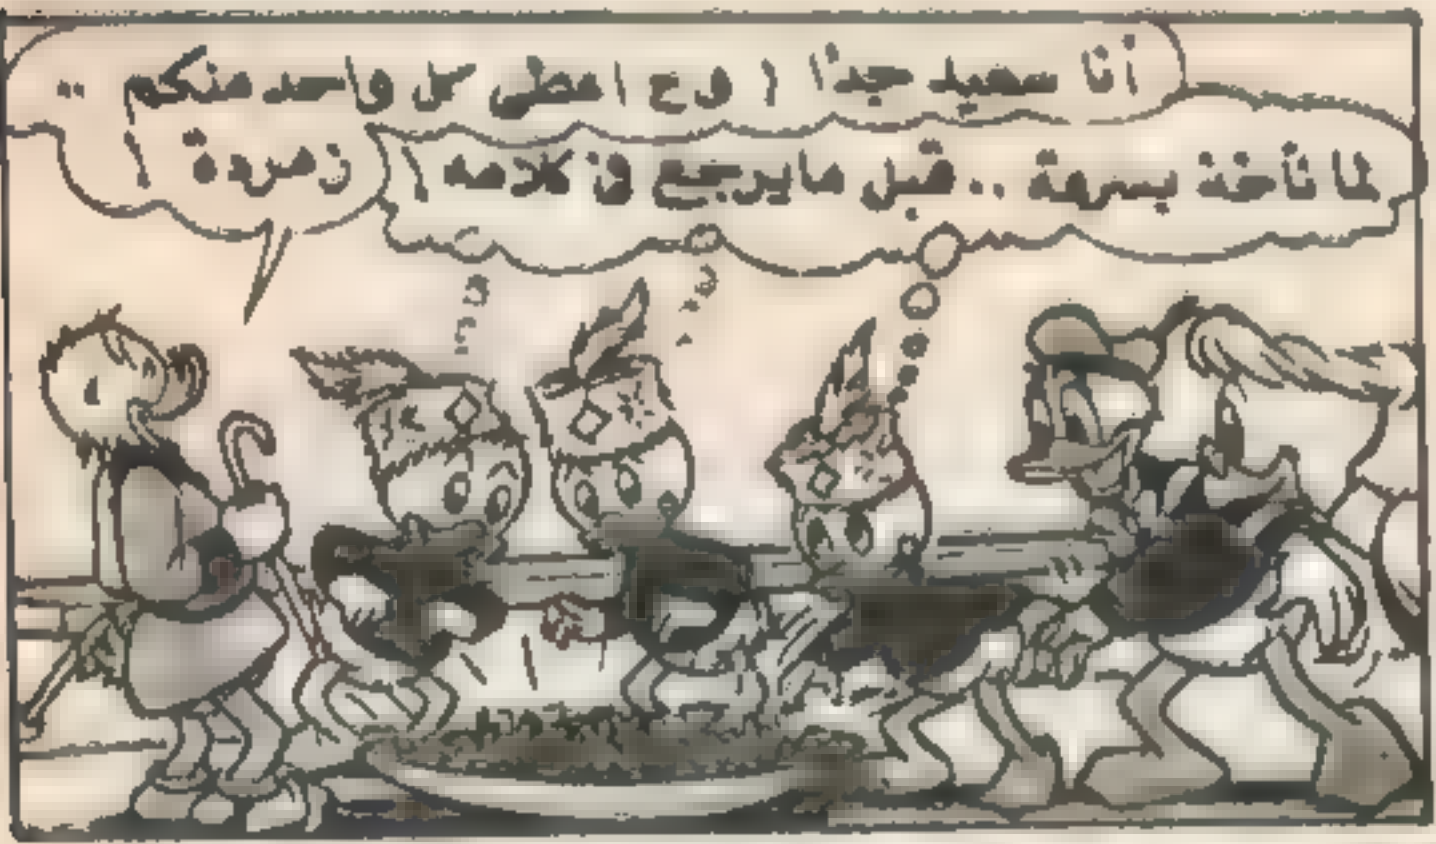 أنا سعيد جدًا ! وح اعطى كل واحد منكم ..
زمردة !
لما نأخذه بسرعة .. قبل مايرجع فى كلامه !